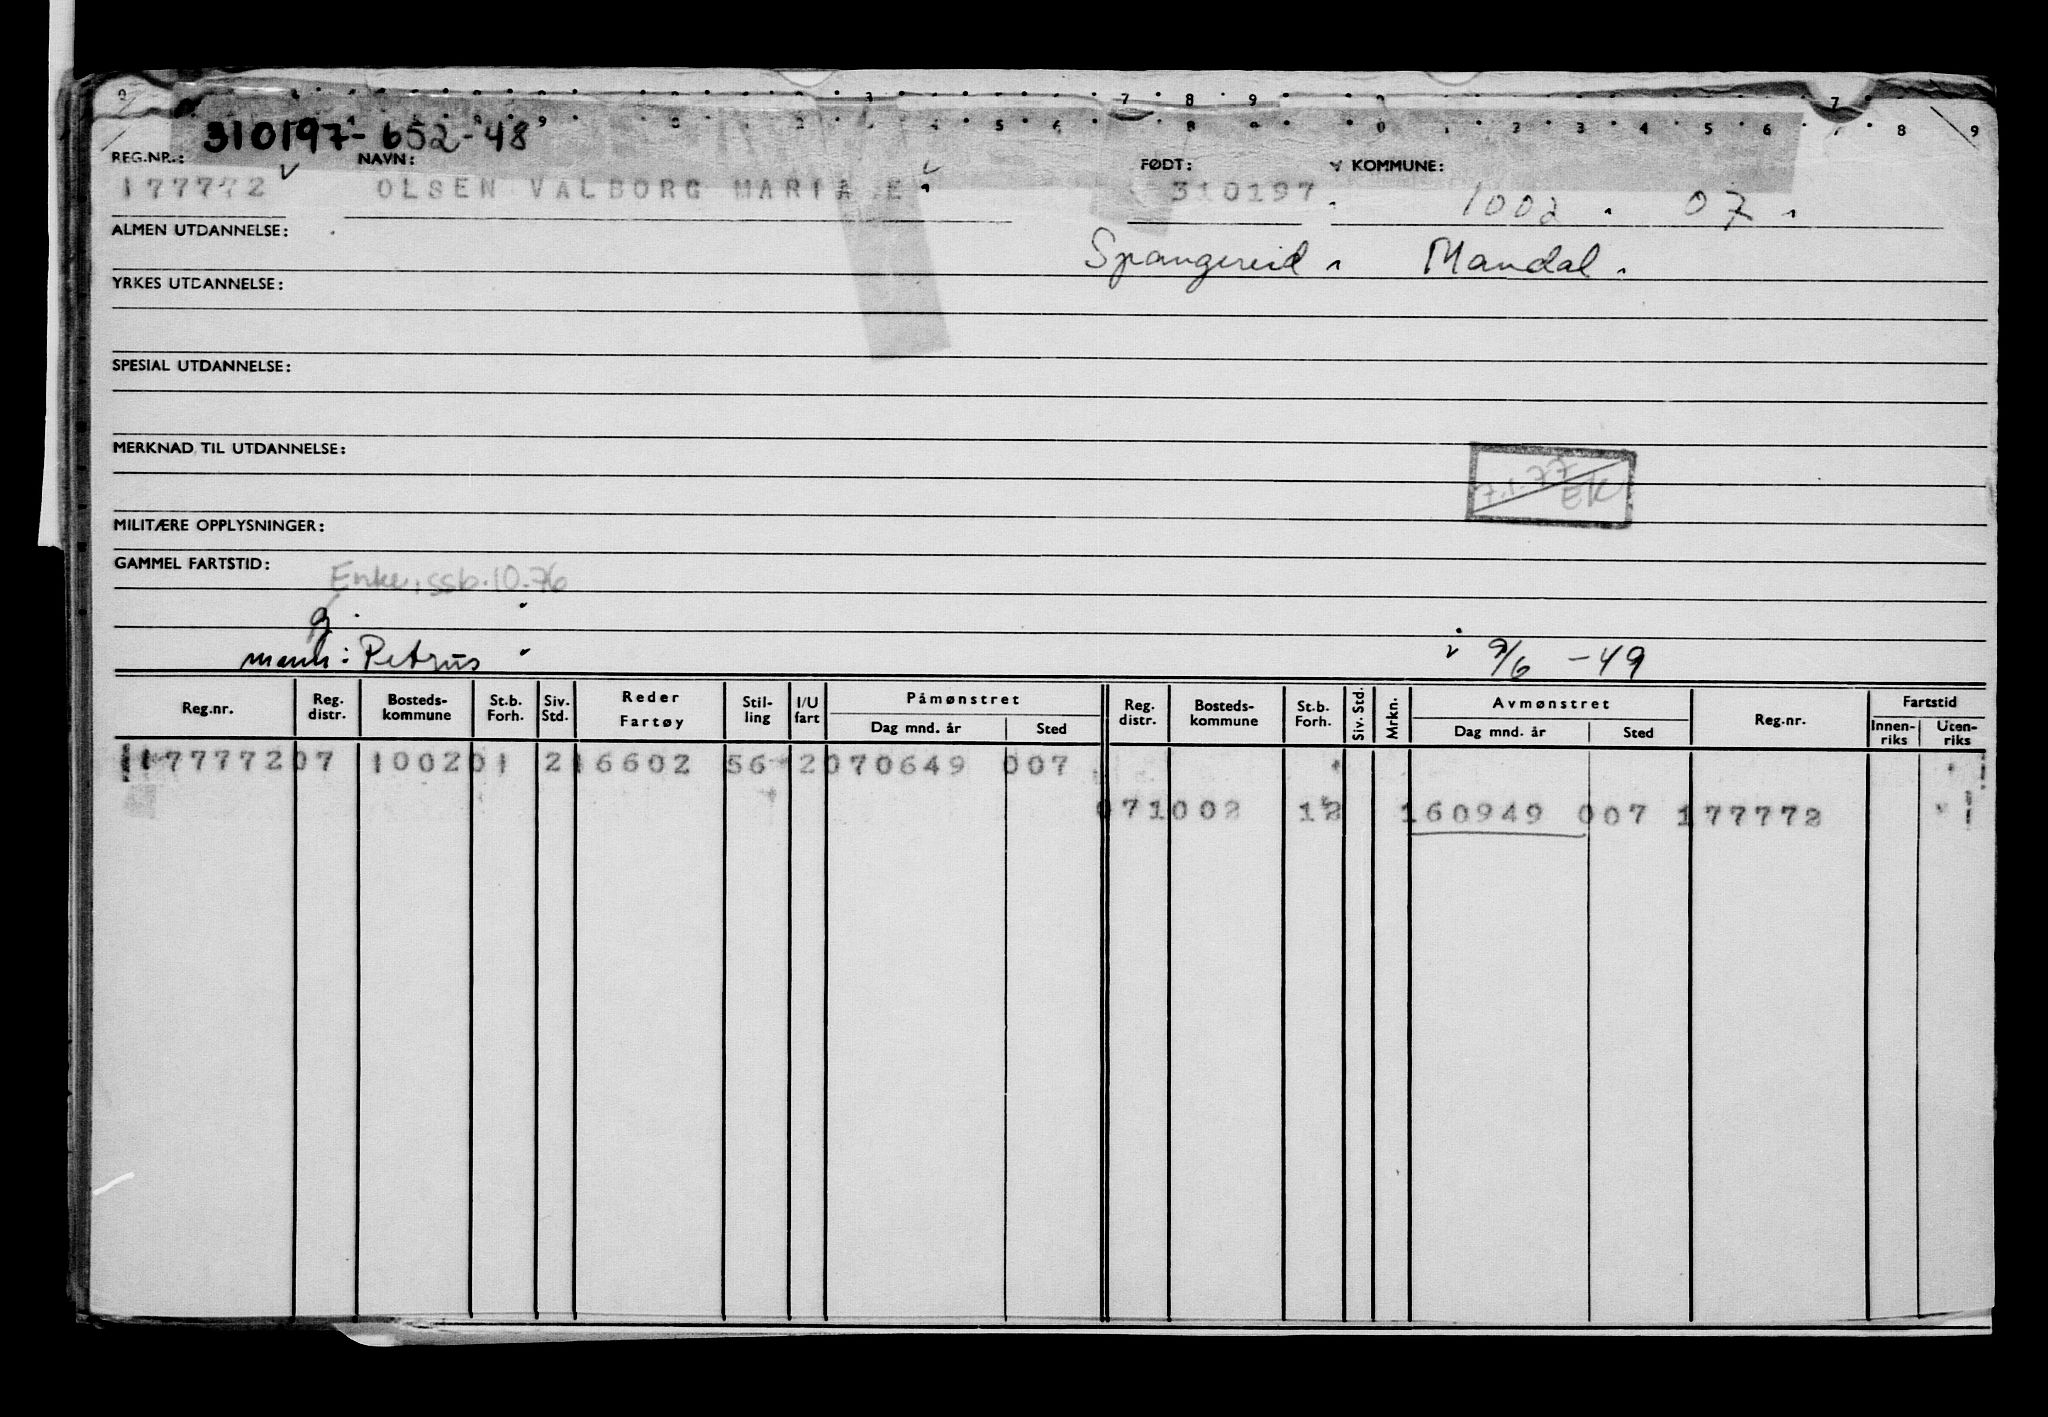 310197-652-48
REG.NR.: NAVN: FØDT: KOMMUNE:
177772 OLSEN VALBORG MARIA E 310197 1002 07
ALMEN UTDANNELSE:
Spangereid Mandal
YRKES UTDANNELSE:
SPESIAL UTDANNELSE:
MERKNAD TIL UTDANNELSE:
7.1.77
EK
MILITÆRE OPPLYSNINGER:
GAMMEL FARTSTID:
Enke, ssb.10.76
g.
mann: Petrus i 9/6 -49
Reg.nr. Reg. distr. Bosteds-kommune St.b. Forh. Siv. Std. Reder Fartøy Stil-ling I/U fart Påmønstret Dag mnd. år Sted Reg. distr. Bosteds-kommune St.b. Forh. Siv. Std. Mrkn. Avmønstret Dag mnd. år Sted Reg.nr. Fartstid Innen-riks Uten-riks
177772 07 1002 01 2 16602 56 2 070649 007
07 1002 12 160949 007 177772